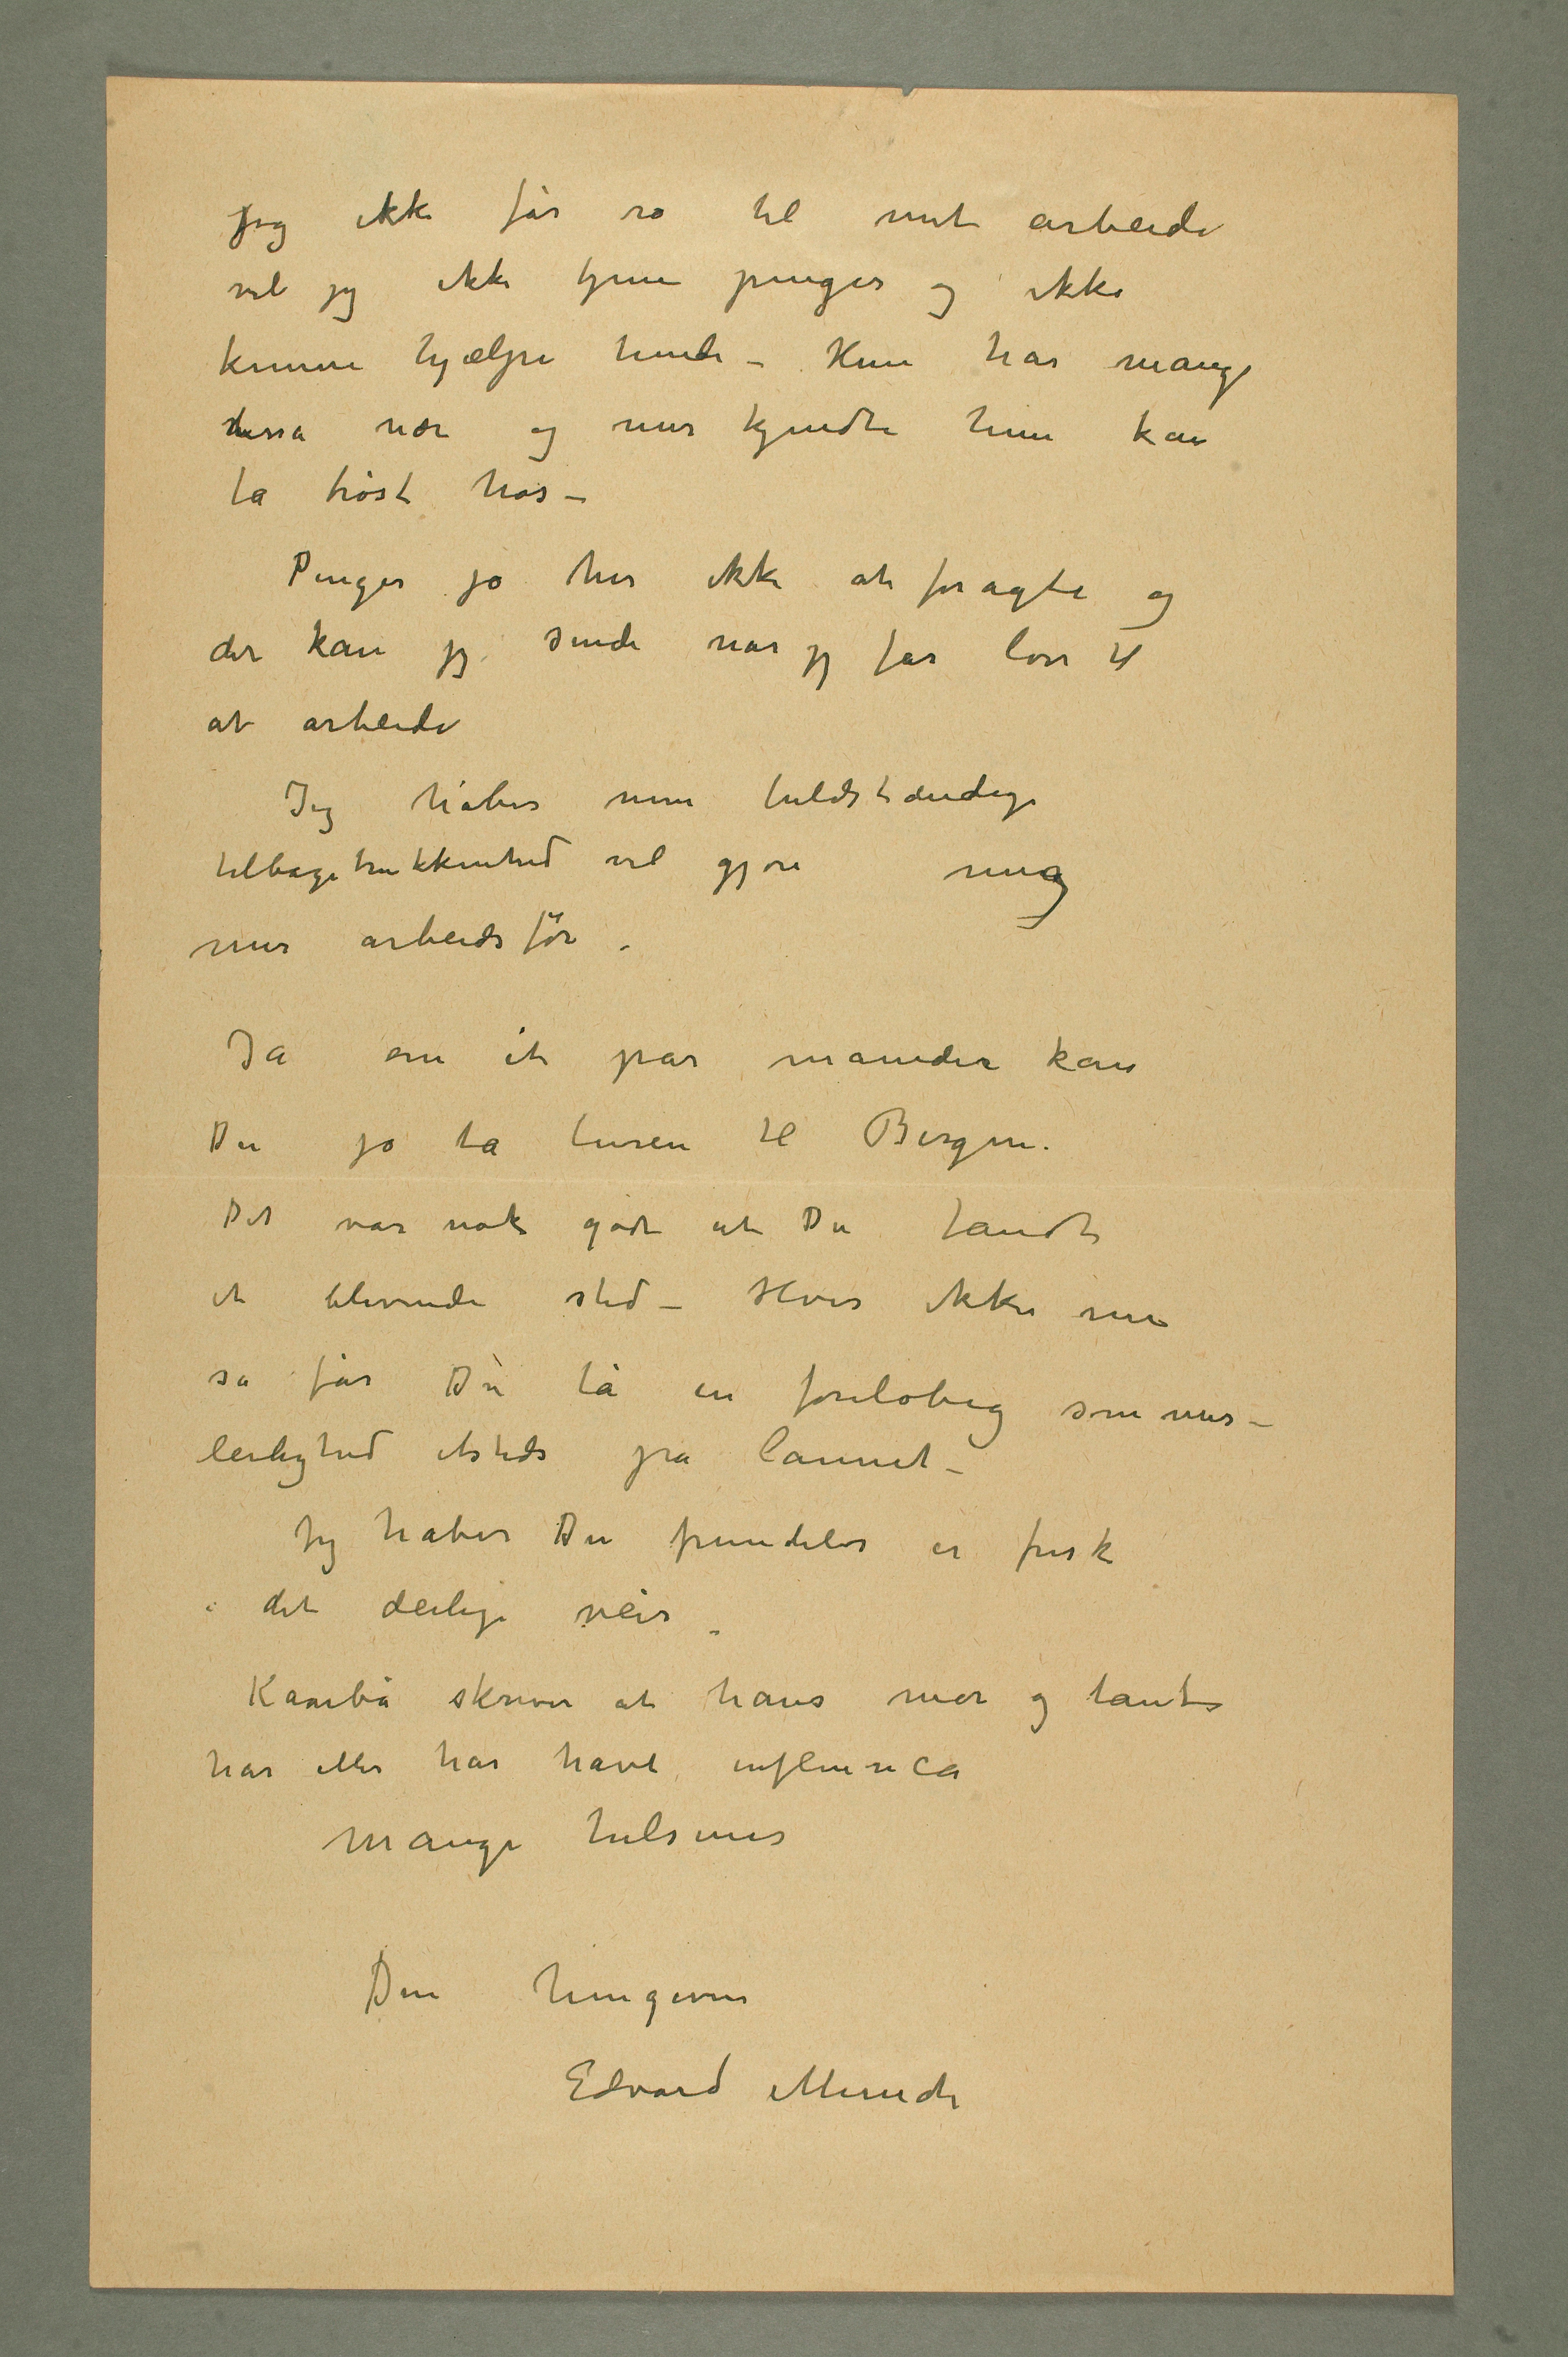 jeg ikke får ro til mit arbeide
vil jeg ikke tjene penger og ikke
kunne hjælpe hende – Hun har mange
nær og mer kjendte hun kan
ta trøst hos –
Penger jo her ikke at foragte og
det kan jeg sende når jeg får lov til
at arbeide
Jeg håber min fuldstændige
tilbagetrukkenhed vil gjøre mig
mer arbeidsfør.
Ja om et par maneder kan
Du jo ta turen til Bergen.
Det var nok godt at Du fandt
et blivende sted – Hvis ikke nu
så får Du ta en foreløbig sommer–
leilighed etsteds på lannet –
Jeg håber Du fremdeles er frisk
i det deilige veir –
Kaarbø skriver at hans mor og tante
har eller har havt influenca
Mange hilsener
Din hengivne
Edvard Munch